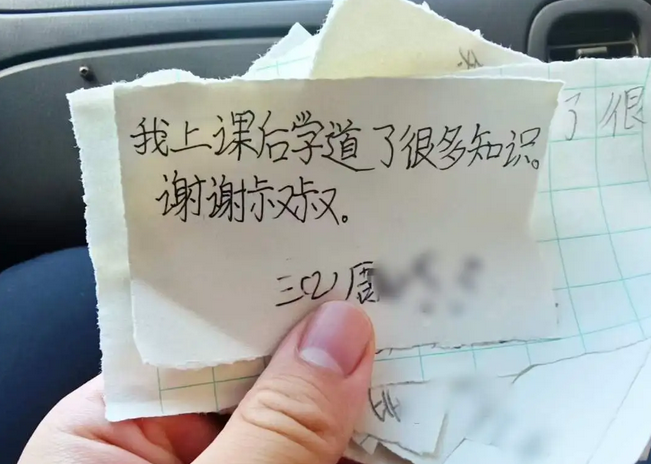 我上课后学道了很多知识。
谢谢叔叔。
三(2)周
了很